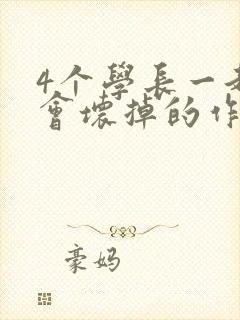 4个學長一
會壞掉的作
豪妈